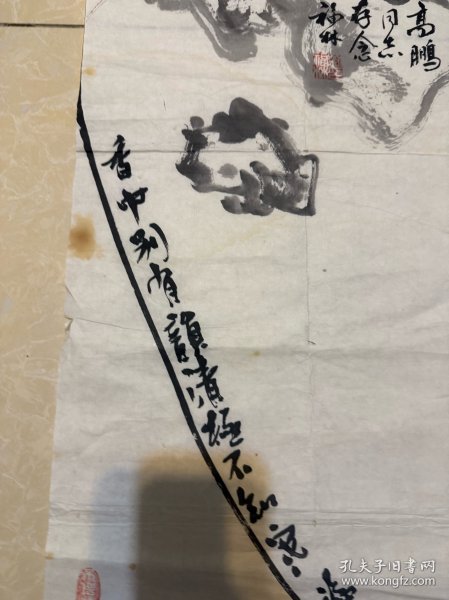 高鹏
同志
存念
福林
香中别有韻清極不知寒
孔夫子旧书网
www.kongfz.com